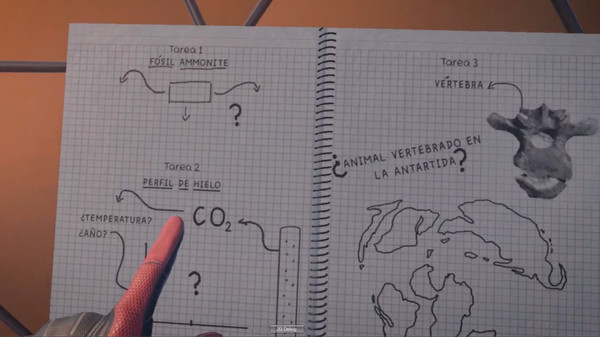 Tarea 1
FÓSIL AMMONITE
?
Tarea 2
PERFIL DE HIELO
¿TEMPERATURA?
CO₂
¿AÑO?
?
Tarea 3
VÉRTEBRA
¿ANIMAL VERTEBRADO EN
LA ANTARTIDA?
2D Debug